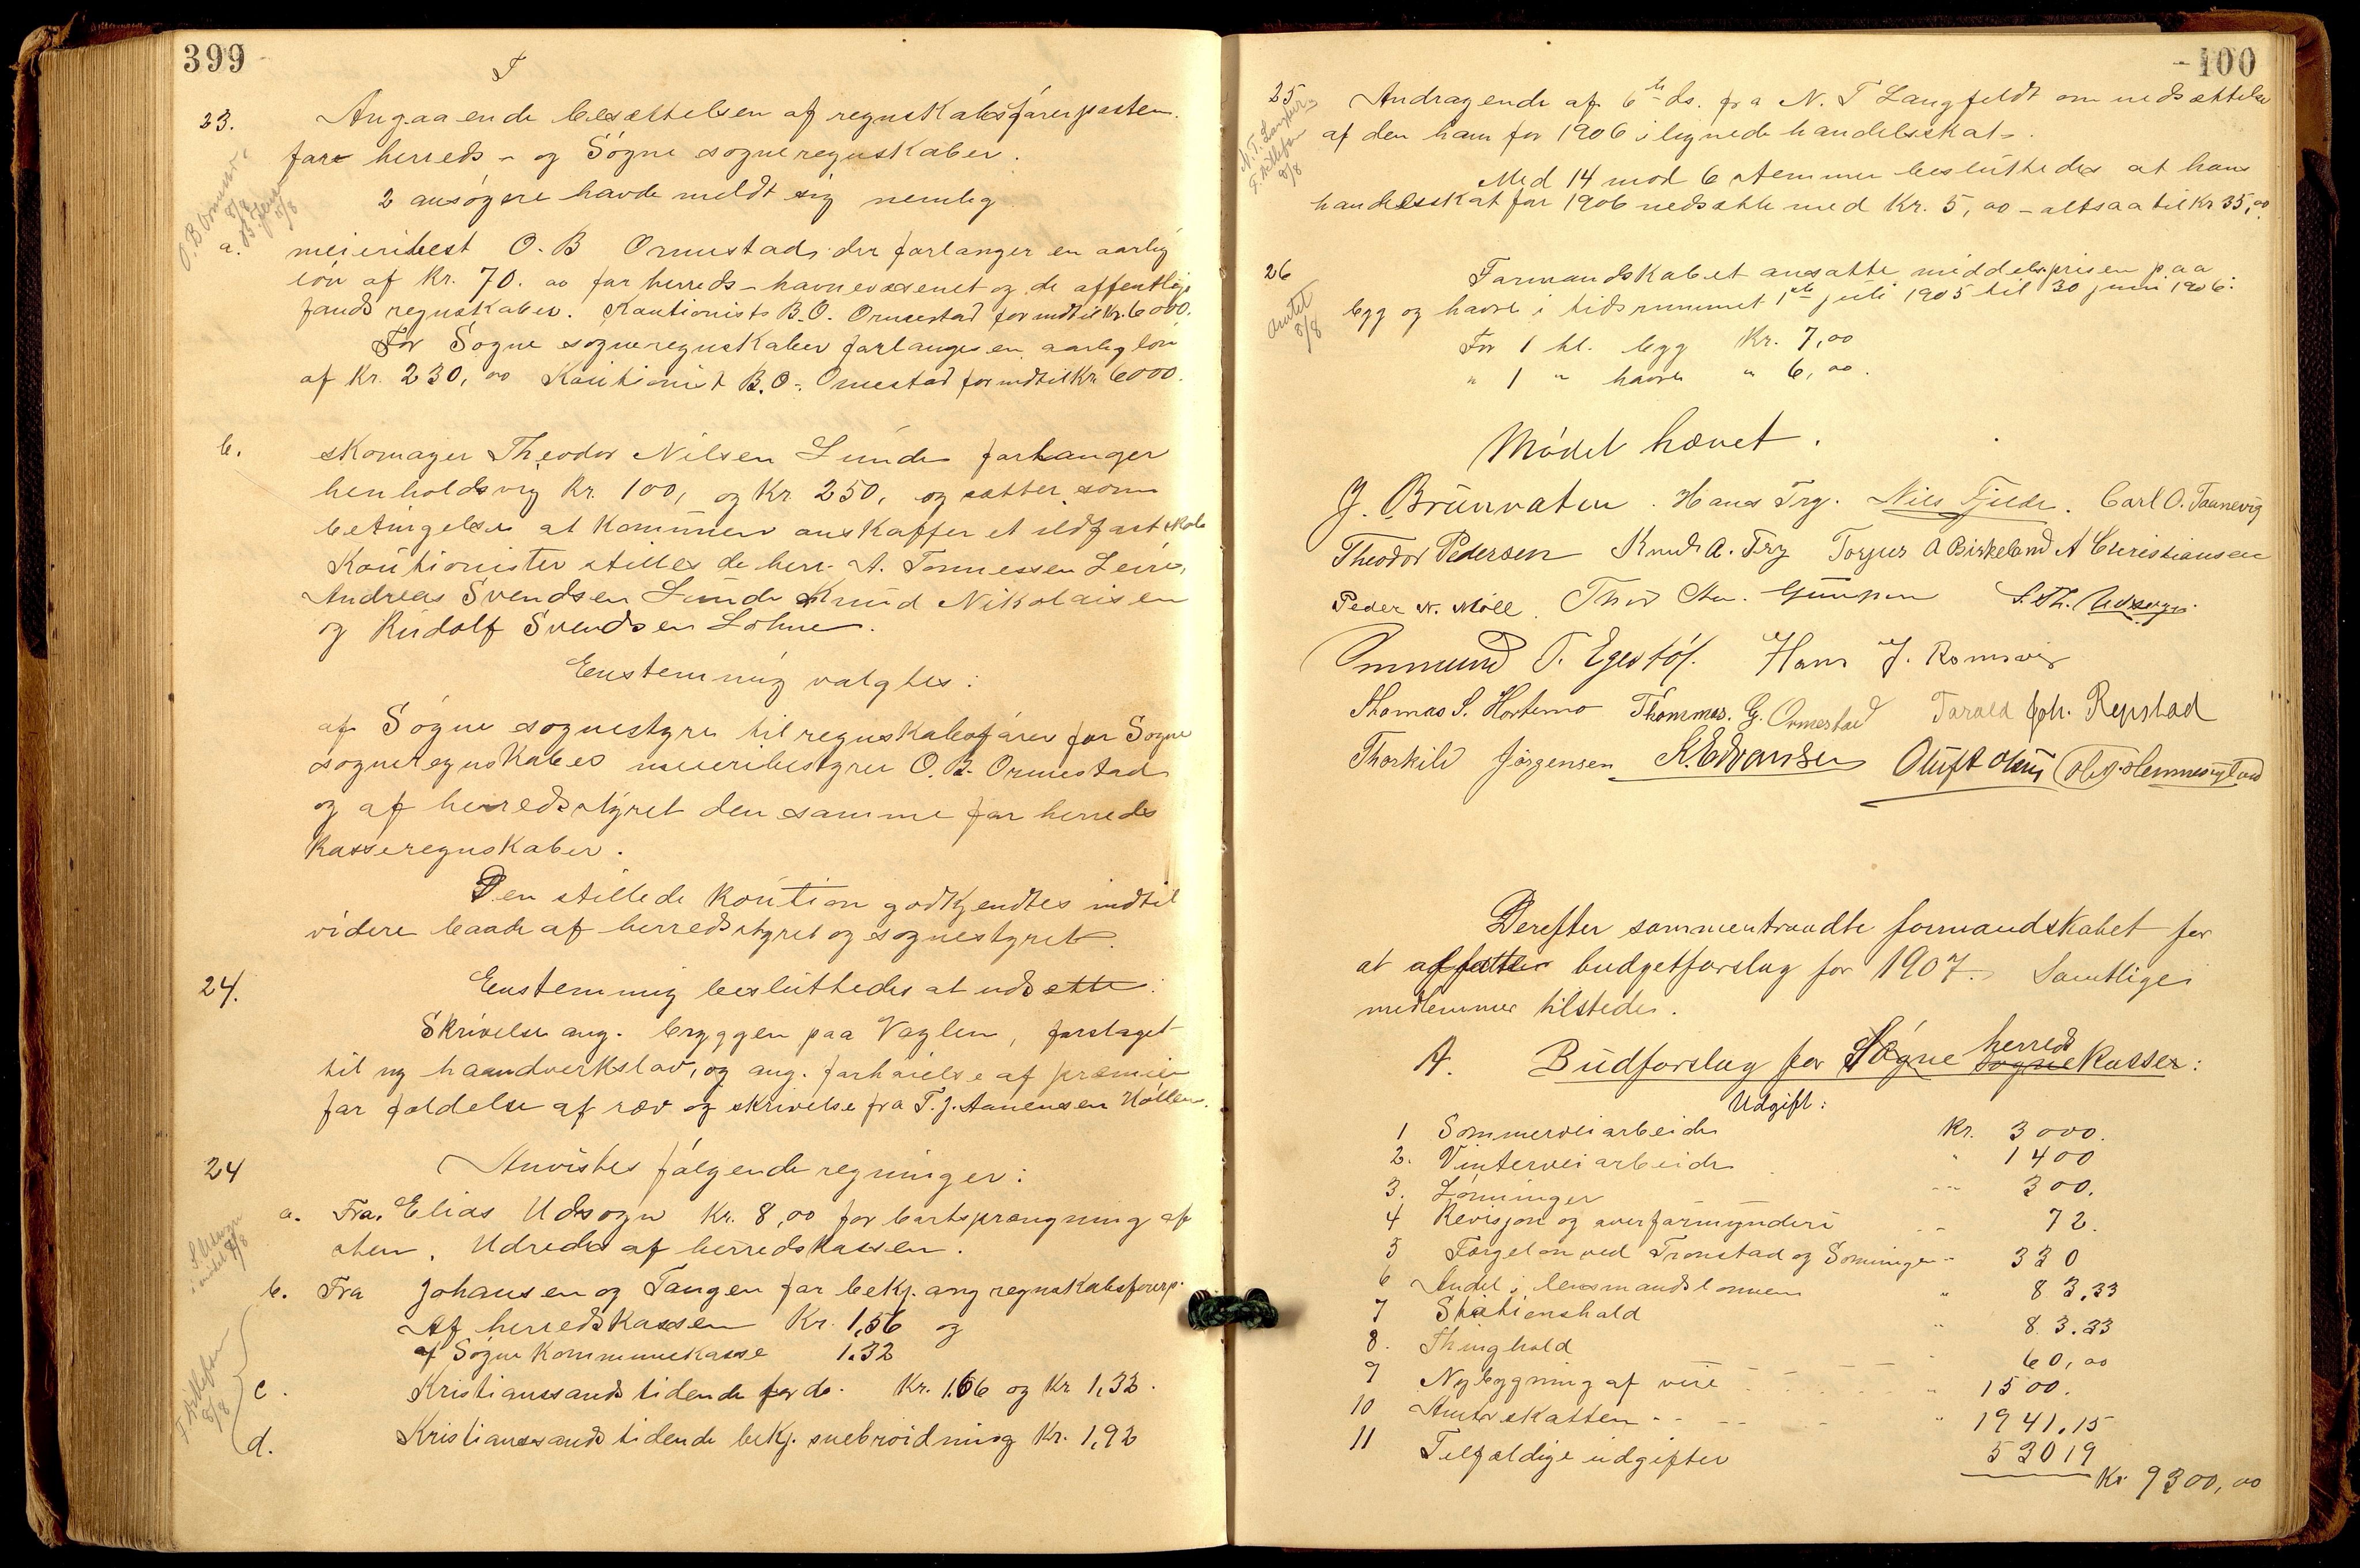 399
23. Angaaende besættelsen af regnskabsførerposten
for herreds- og Søgne sogneregnskaber.
2 ansøgere havde meldt sig nemlig
O. B. Ormest.
8/8
a. meieribest O. B Ormestad, der forlanger en aarlig
løn af Kr. 70.00 for herreds- havnevæsenet og de offentlige
fonds regnskaber. Kautionist B. O. Ormestad for indtil Kr. 6000.
For Søgne sogneregnskaber forlanges en aarlig løn
af Kr. 230,00 Kautionist B. O. Ormestad for indtil Kr. 6000.
b. skomager Theodor Nilsen Lunde forlanger
henholdsvis Kr. 100, og Kr 250, og sætter som
betingelse at kommunen anskaffer et ildfast skab
Kautionister stilles de herr. A. Tønnessen Leire,
Andreas Svendsen Lunde Knud Nikolaisen
og Rudolf Svendsen Lohne.
Enstemmig valgtes:
af Søgne sognestyre til regnskabsfører for Søgne
sogneregnskabes meieribestyrer O. B. Ormestad
og af herredsstyret den samme for herreds
kasseregnskaber.
Den stillede kaution godkjendtes indtil
videre baade af herredsstyret og sognestyret.
24. Enstemmig besluttedes at udsætte:
Skrivelse ang. bryggen paa Vaglen, forslaget
til ny haandverkslov, og ang. forhøielse af præmier
for fældelse af ræv og skrivelse fra T. J. Aanensen Høllen.
24 Anvistes følgende regninger:
a. Fra Elias Udsogn Kr. 8,00 for bortsprængning af
sten. Udredes af herredskassen.
b. Fra Johansen og Tangen for bekj. ang regnskabsførerp.
Af herredskassen Kr. 1,56 og
af Søgne Kommunekasse 1.32
c. Kristianssands tidende for do. Kr. 1.66 og Kr 1,32.
d. Kristianssands tidende bekj. snebrøidning Kr. 1,92
F. Aitkefsen
8/8
400
25 Andragende af 6te ds. fra N. T Langfeldt om nedsættelse
af den ham for 1906 ilignede handelsskat.
N. T. Langfeldt
8/8
Med 14 mod 6 stemmer besluttedes at hans
handelsskat for 1906 nedsatte med Kr. 5,00 - altsaa til Kr 35,00
26 Formandskabet ansatte middelsprisen paa
byg og havre i tidsrummet 1ste juli 1905 til 30 juni 1906:
Amtet
8/8
For 1 hl. byg Kr. 7,00
" 1 " havre " 6,00.
Mødet hævet.
J. Brunvatne. Hans Try. Nils Fjelde. Carl O. Taanevig
Theodor Pedersen Knud A. Try Torjus A Birkeland A Christiansen
Peder N. Møll. S. Th. Udsogn
Ommund T. Egestøl. Hans J. Romsvig
Thomas S. Hortemo Thommas. G. Ormestad Tarald Joh. Repstad
Thorkild Jørgensen K. Edvansen
Derefter sammentraadte formandskabet for
at affatte budgetforslag for 1907. Samtlige
medlemmer tilstede.
A. Budforslag for Søgne herreds sognekasse:
Udgift:
1 Sommerveiarbeide Kr. 3000.
2. Vinterveiarbeide " 1400
3. Lønninger 300.
4 Revisjon og overformynderi 72.
5 Færgeløn ved Tronstad og Sonningen 330
6 Andel i lensmandslønnen " 83,33
7 Skationshold " 83.33
8. Thinghold 60,00
9 Nybygning af veie " 1500.
10 Amtsskatten " 1941,15
11 Tilfældige udgifter 53019
Kr 9300,00